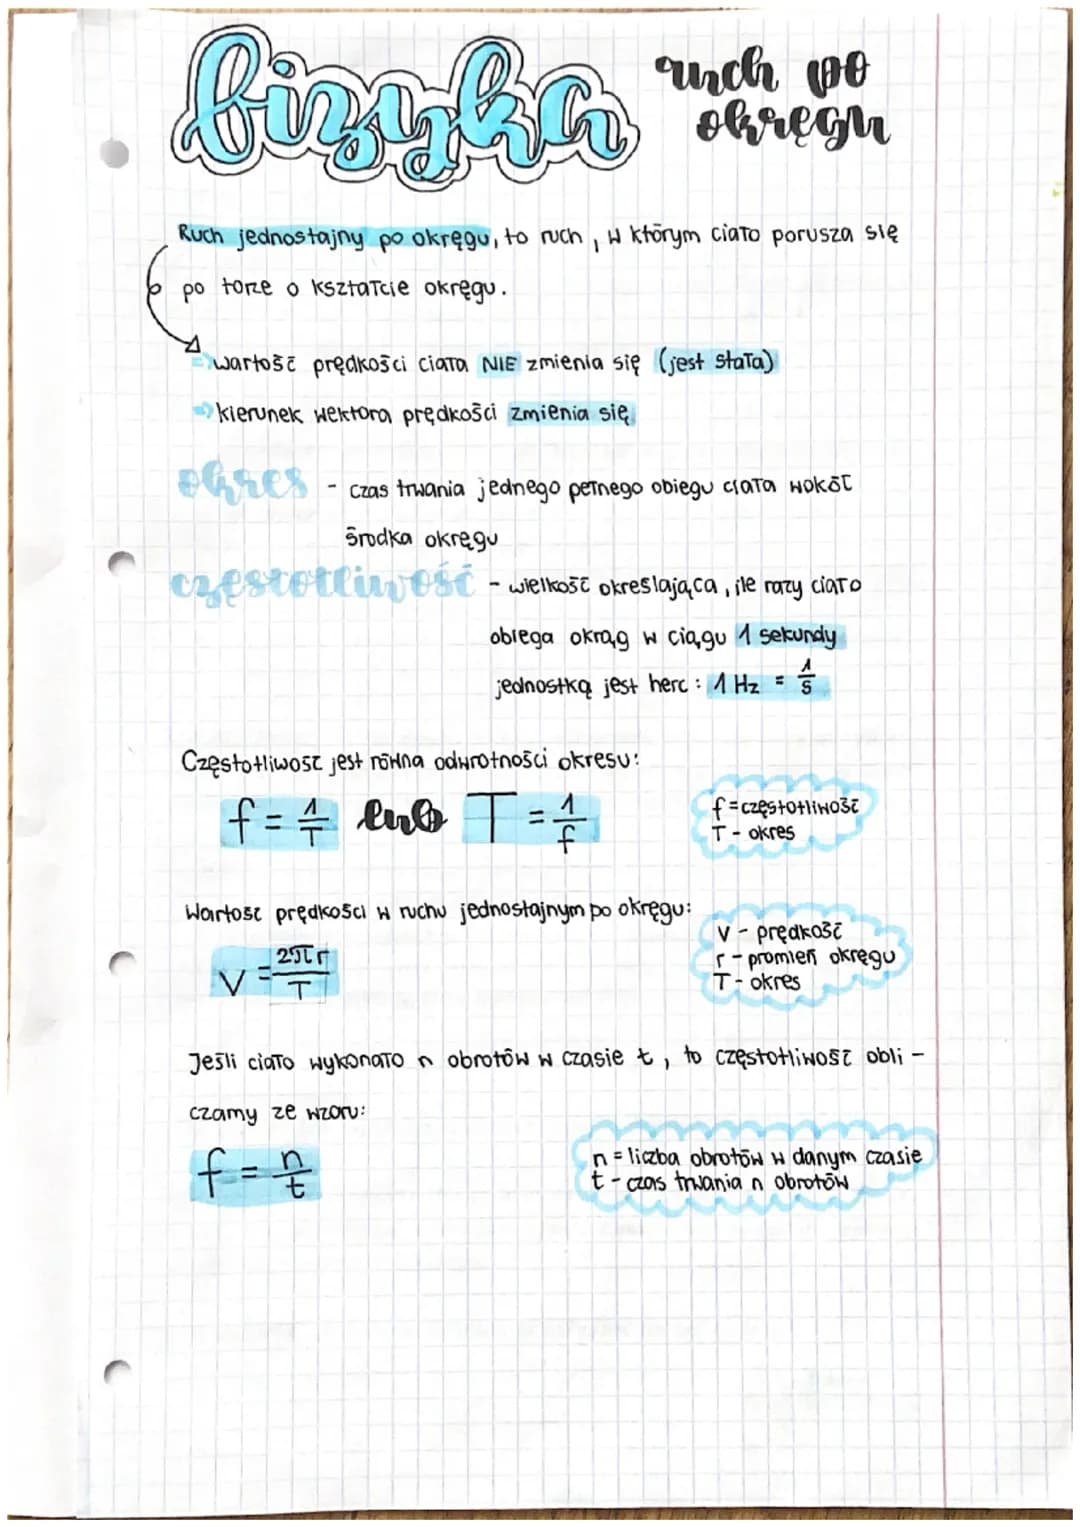 fizyka
ruch po
okręgu
Ruch jednostajny po okręgu, to ruch, w którym ciało porusza się
po torze o kształcie okręgu.
⇒ wartość prędkości ciała NIE zmienia się (jest stała)
⇒ kierunek wektora prędkości zmienia się
okres - czas trwania jednego pełnego obiegu ciała wokół
środka okręgu
częstotliwość - wielkość określająca, ile razy ciało
obiega okrąg w ciągu 1 sekundy
jednostką jest herc: 1 Hz = 1/s
Częstotliwość jest równa odwrotności okresu:
f = 1/T lub T = 1/f
f = częstotliwość
T - okres
Wartość prędkości w ruchu jednostajnym po okręgu:
v = 2πr/T
v - prędkość
r - promień okręgu
T - okres
Jeśli ciało wykonało n obrotów w czasie t, to częstotliwość obli -
czamy ze wzoru:
f = n/t
n = liczba obrotów w danym czasie
t - czas trwania n obrotów